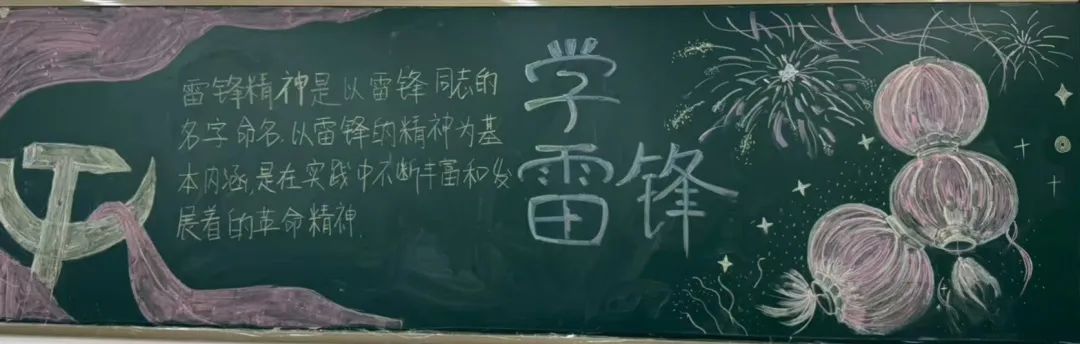 雷锋精神是以雷锋同志的
名字命名、以雷锋的精神为基
本内涵,是在实践中不断丰富和发
展着的革命精神.
学
雷锋